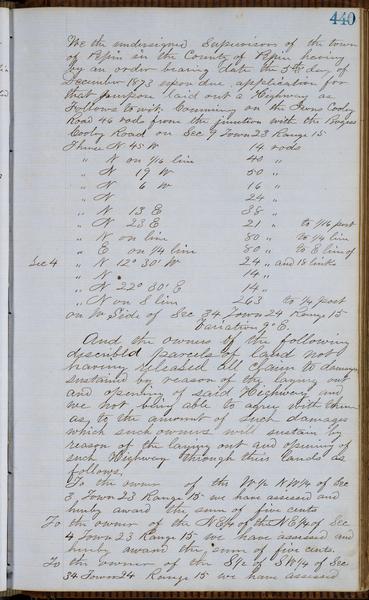 440
We the undersigned Supervisors of the town
of Pepin in the County of Pepin having
by an order bearing date the 5th day of
December 1873 upon due application for
that purpose laid out a Highway as
Follows to wit. Comencing on the Cooley
Road 46 rods from the junction with the
Cooley Road on Sec 9 Town 23 Range 15
Thence N 45 W 14 rods
" N on 1/16 line 40 "
" N 19 W 50 "
" N 6 W 16 "
" N 24 "
" N 13 E 38 "
" N 23 E 21 " to 1/16 post
" N on line 80 " to 1/4 line
" E on 1/4 line 80 " to E line of
Sec 4 " N 12° 30' W 24 " and 18 links
" N 14 "
" N 22° 30' E 14 "
" N on S line 263 to 1/4 post
on W Side of Sec 34 Town 24 Range 15
Variation 9° E.
And the owners of the following
described parcels of land not
having released all claim to damages
sustained by reason of the laying out
and opening of said Highway and
we not being able to agree with them
as to the amount of such damages
which such owners will sustain by
reason of the laying out and opening of
such Highway through their lands as
follows,
To the owner of the W 1/2 N W 1/4 of Sec
3, Town 23 Range 15 we have assessed and
hereby award the sum of five cents
To the owner of the N E 1/4 of the N E 1/4 of Sec
4 Town 23 Range 15 we have assessed and
hereby award the sum of five cents.
To the owner of the S 1/2 of S W 1/4 of Sec
34 Town 24 Range 15 we have assessed